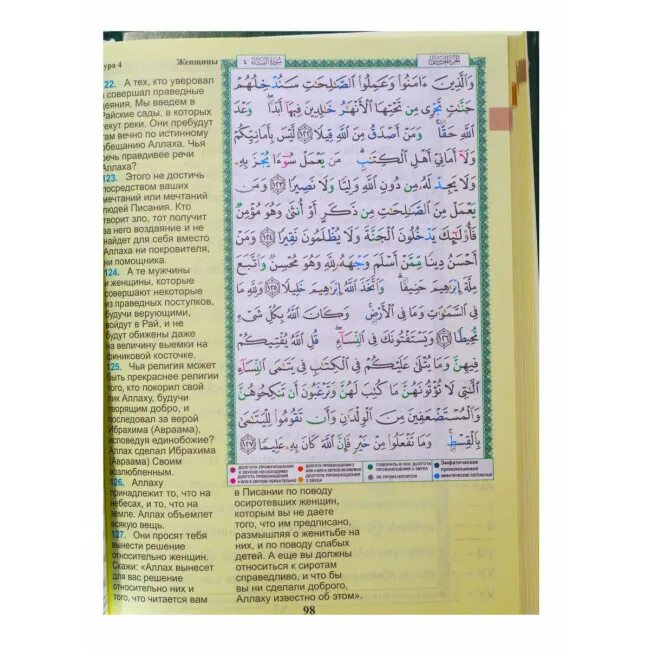 ура 4
Женщины
سورة النساء ٤
الجزء الخامس
22. А тех, кто уверовал
совершал праведные
деяния, Мы введем в
Райские сады, в которых
текут реки. Они пребудут
там вечно по истинному
обещанию Аллаха. Чья
речь правдивее речи
Аллаха?
123. Этого не достичь
посредством ваших
мечтаний или мечтаний
людей Писания. Кто
творит зло, тот получит
за него воздаяние и не
найдет для себя вместо
Аллаха ни покровителя,
ни помощника.
124. А те мужчины
и женщины, которые
совершают некоторые
из праведных поступков,
будучи верующими,
войдут в Рай, и не
будут обижены даже
на величину выемки на
финиковой косточке.
125. Чья религия может
быть прекраснее религии
того, кто покорил свой
лик Аллаху, будучи
творящим добро, и
последовал за верой
Ибрахима (Авраама),
исповедуя единобожие?
Аллах сделал Ибрахима
(Авраама) Своим
возлюбленным.
126. Аллаху
принадлежит то, что на
небесах, и то, что на
земле. Аллах объемлет
всякую вещь.
127. Они просят тебя
вынести решение
относительно женщин.
Скажи: «Аллах вынесет
для вас решение
относительно них и
того, что читается вам
وَالَّذِينَ ءَامَنُوا وَعَمِلُوا الصَّالِحَاتِ سَنُدْخِلُهُمْ
جَنَّاتٍ تَجْرِي مِن تَحْتِهَا الْأَنْهَارُ خَالِدِينَ فِيهَا أَبَدًا وَعْدَ
اللَّهِ حَقًّا وَمَنْ أَصْدَقُ مِنَ اللَّهِ قِيلًا ١٢٢ لَيْسَ بِأَمَانِيِّكُمْ
وَلَا أَمَانِيِّ أَهْلِ الْكِتَابِ مَن يَعْمَلْ سُوءًا يُجْزَ بِهِ
وَلَا يَجِدْ لَهُ مِن دُونِ اللَّهِ وَلِيًّا وَلَا نَصِيرًا ١٢٣ وَمَن
يَعْمَلْ مِنَ الصَّالِحَاتِ مِن ذَكَرٍ أَوْ أُنثَى وَهُوَ مُؤْمِنٌ
فَأُولَٰئِكَ يَدْخُلُونَ الْجَنَّةَ وَلَا يُظْلَمُونَ نَقِيرًا ١٢٤ وَمَنْ
أَحْسَنُ دِينًا مِّمَّنْ أَسْلَمَ وَجْهَهُ لِلَّهِ وَهُوَ مُحْسِنٌ وَاتَّبَعَ
مِلَّةَ إِبْرَاهِيمَ حَنِيفًا وَاتَّخَذَ اللَّهُ إِبْرَاهِيمَ خَلِيلًا ١٢٥ وَلِلَّهِ مَا
فِي السَّمَاوَاتِ وَمَا فِي الْأَرْضِ وَكَانَ اللَّهُ بِكُلِّ شَيْءٍ
مُحِيطًا ١٢٦ وَيَسْتَفْتُونَكَ فِي النِّسَاءِ قُلِ اللَّهُ يُفْتِيكُمْ
فِيهِنَّ وَمَا يُتْلَى عَلَيْكُمْ فِي الْكِتَابِ فِي يَتَامَى النِّسَاءِ
اللَّاتِي لَا تُؤْتُونَهُنَّ مَا كُتِبَ لَهُنَّ وَتَرْغَبُونَ أَن تَنكِحُوهُنَّ
وَالْمُسْتَضْعَفِينَ مِنَ الْوِلْدَانِ وَأَن تَقُومُوا لِلْيَتَامَى
بِالْقِسْطِ وَمَا تَفْعَلُوا مِنْ خَيْرٍ فَإِنَّ اللَّهَ كَانَ بِهِ عَلِيمًا ١٢٧
в Писании по поводу
осиротевших женщин,
которым вы не даете
того, что им предписано,
размышляя о женитьбе на
них, и по поводу слабых
детей. А еще вы должны
относиться к сиротам
справедливо, и что бы
вы ни сделали доброго,
Аллаху известно об этом».
98